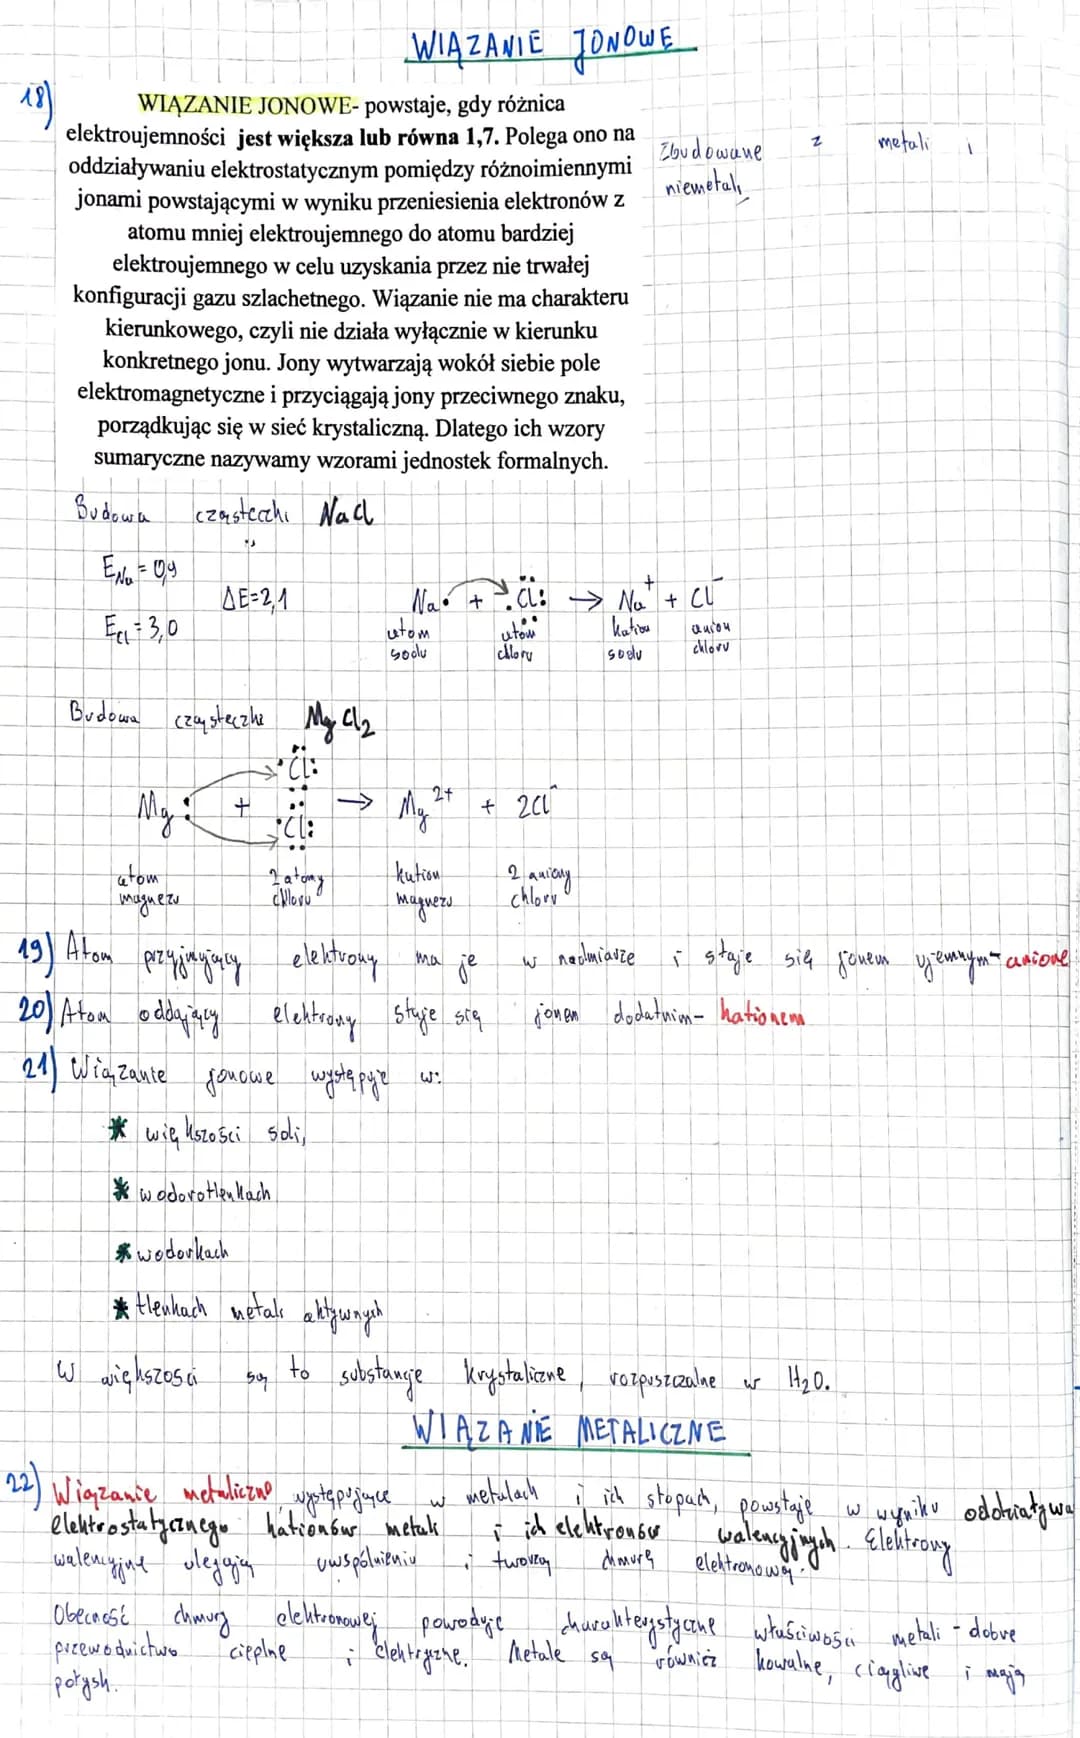 WIĄZANIE JONOWE
18)
WIĄZANIE JONOWE- powstaje, gdy różnica
elektroujemności jest większa lub równa 1,7. Polega ono na
oddziaływaniu elektrostatycznym pomiędzy różnoimiennymi
jonami powstającymi w wyniku przeniesienia elektronów z
atomu mniej elektroujemnego do atomu bardziej
elektroujemnego w celu uzyskania przez nie trwałej
konfiguracji gazu szlachetnego. Wiązanie nie ma charakteru
kierunkowego, czyli nie działa wyłącznie w kierunku
konkretnego jonu. Jony wytwarzają wokół siebie pole
elektromagnetyczne i przyciągają jony przeciwnego znaku,
porządkując się w sieć krystaliczną. Dlatego ich wzory
sumaryczne nazywamy wzorami jednostek formalnych.
Zbudowane z metali i
niemetali
Budowa cząsteczki NaCl
E_Na = 0,9
ΔE=2,1
E_Cl = 3,0
Na· + ·Cl: → Na⁺ + Cl⁻
atom atom kation anion
sodu chloru sodu chloru
Budowa cząsteczki MgCl₂
·Cl:
Mg: + → Mg²⁺ + 2Cl⁻
·Cl:
atom 2 atomy kation 2 aniony
magnezu chloru magnezu chloru
19) Atom przyjmujący elektrony ma je w nadmiarze i staje się jonem ujemnym- anione
20) Atom oddający elektrony staje się jonem dodatnim- kationem
21) Wiązanie jonowe występuje w:
* większości soli,
* wodorotlenkach
* wodorkach
* tlenkach metali aktywnych
W większości są to substancje krystaliczne, rozpuszczalne w H₂O.
WIĄZANIE METALICZNE
22) Wiązanie metaliczne, występujące w metalach i ich stopach, powstaje w wyniku oddziaływa
elektrostatycznego kationów metali i ich elektronów walencyjnych. Elektrony
walencyjne ulegają uwspólnieniu i tworzą chmurę elektronową.
Obecność chmury elektronowej powoduje charakterystyczne właściwości metali - dobre
przewodnictwo cieplne i elektryczne. Metale są również kowalne, ciągliwe i mają
połysk.